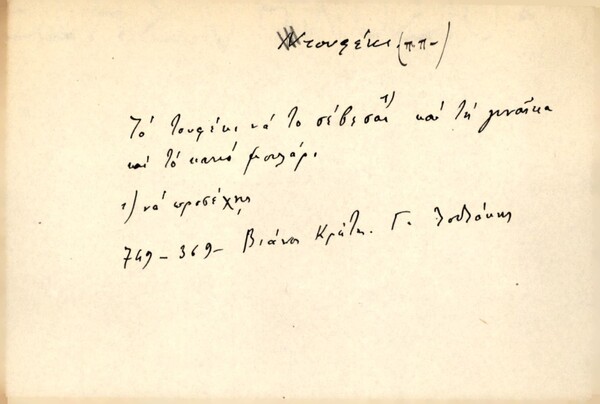 τουφέκι (π.π-)
Τό τουφέκι νά τό σέβεσαι ¹) καί τή γυναῖκα
καί τό κακό μουλάρι.
1) νά προσέχῃς
749-369- Βιάνος Κρήτης. Γ.